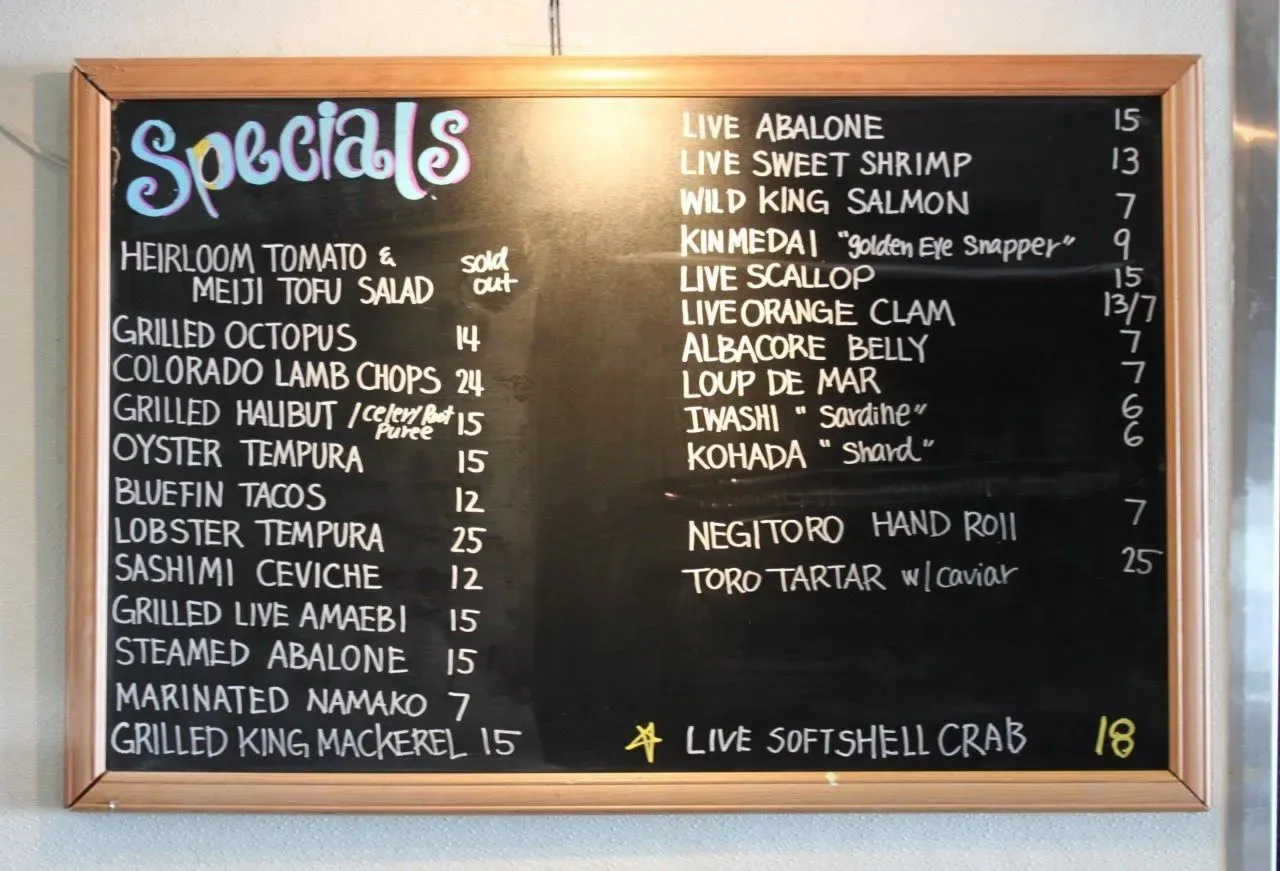 Specials
HEIRLOOM TOMATO & sold
MEIJI TOFU SALAD out
GRILLED OCTOPUS 14
COLORADO LAMB CHOPS 24
GRILLED HALIBUT / Celery/Root 15
Puree
OYSTER TEMPURA 15
BLUEFIN TACOS 12
LOBSTER TEMPURA 25
SASHIMI CEVICHE 12
GRILLED LIVE AMAEBI 15
STEAMED ABALONE 15
MARINATED NAMAKO 7
GRILLED KING MACKEREL 15
LIVE ABALONE 15
LIVE SWEET SHRIMP 13
WILD KING SALMON 7
KINMEDAI "golden Eye Snapper" 9
LIVE SCALLOP 15
LIVE ORANGE CLAM 13/7
ALBACORE BELLY 7
LOUP DE MAR 7
IWASHI "Sardine" 6
KOHADA "Shard" 6
NEGITORO HAND ROll 7
TORO TARTAR w/caviar 25
LIVE SOFTSHELL CRAB 18